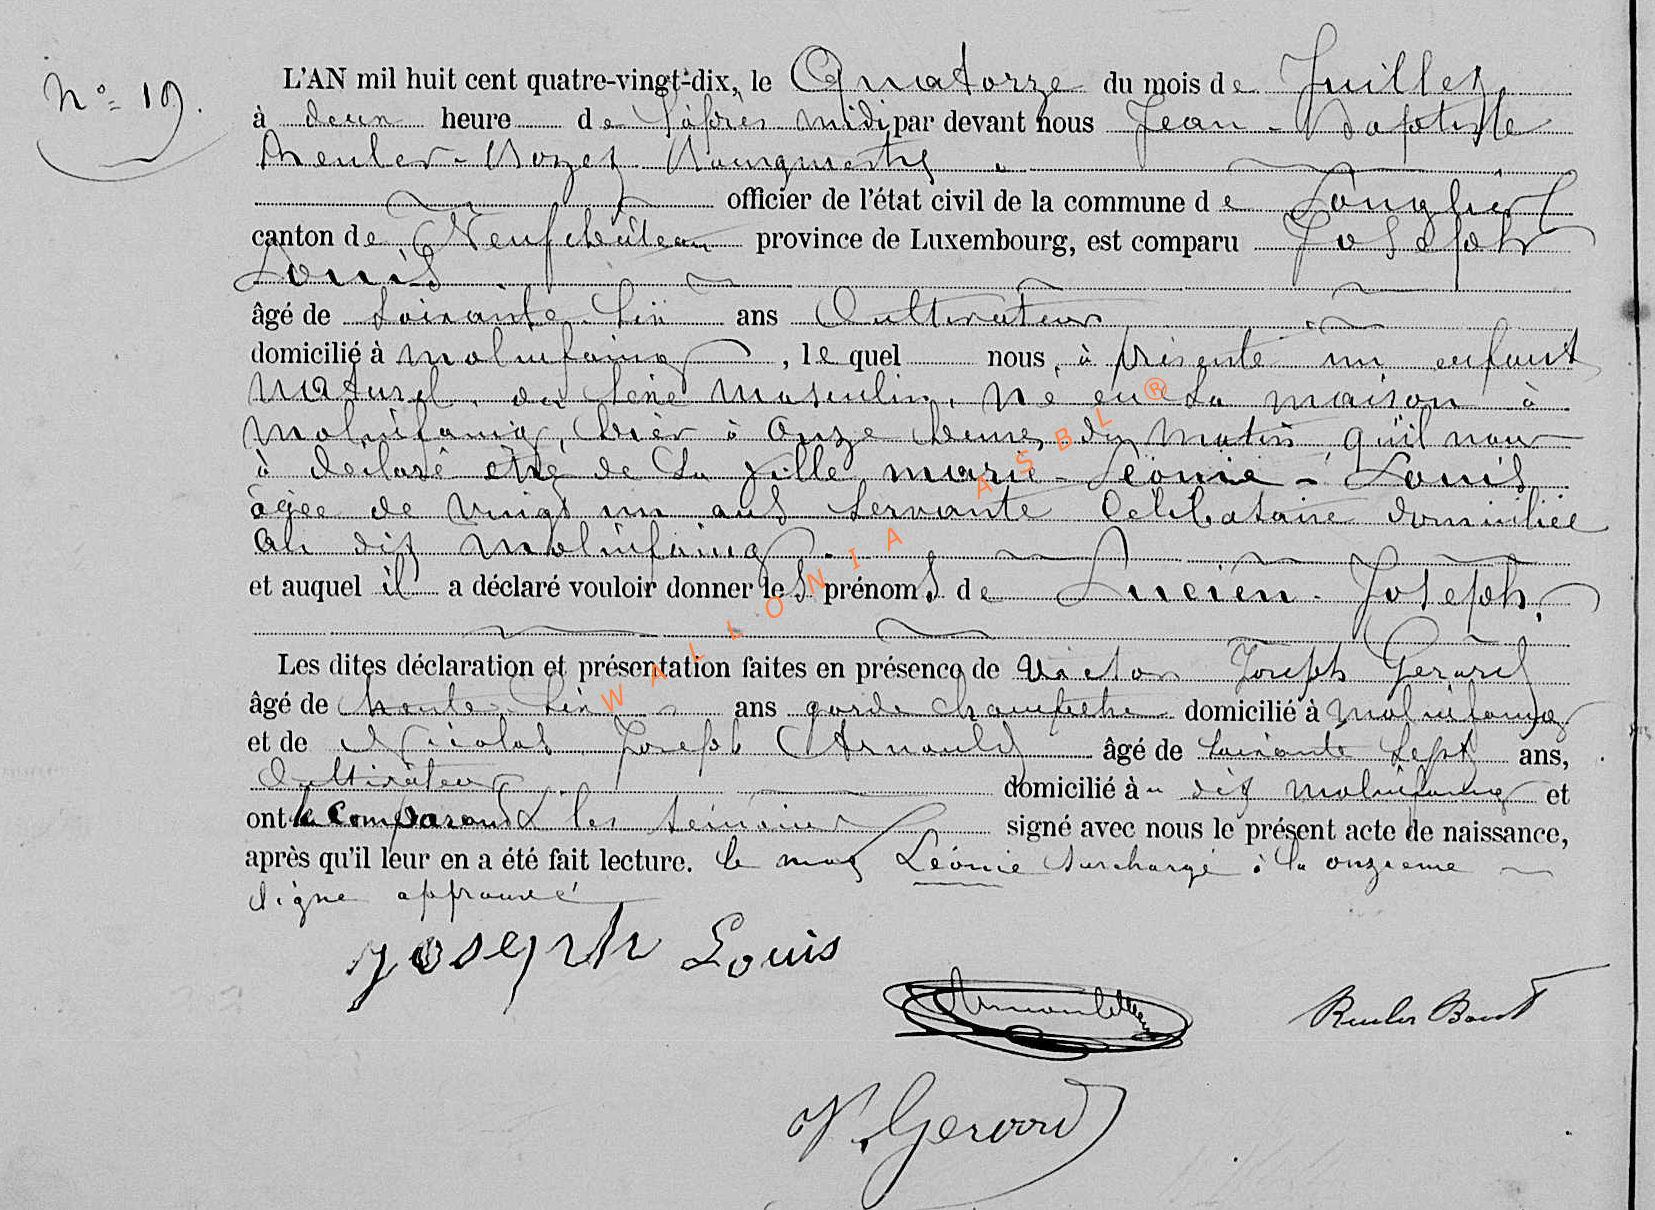 N° 19.
L'AN mil huit cent quatre-vingt-dix, le Quatorze du mois de Juillet
à deux heure de l'après midi par devant nous Jean-Baptiste
Reuler-Bozet Bourgmestre
officier de l'état civil de la commune de Longlier
canton de Neufchâteau province de Luxembourg, est comparu Joseph
Louis
âgé de Soixante Six ans Cultivateur
domicilié à Molinfaing, lequel nous à présenté un enfant
naturel du sexe masculin, né en sa maison à
Molinfaing, hier à onze heures du matin qu'il nous
à déclaré être de sa fille marie-Léonie-Louis
âgée de vingt un ans servante Célibataire domiciliée
au dit Molinfaing.
et auquel il a déclaré vouloir donner les prénoms de Lucien-Joseph.
Les dites déclaration et présentation faites en présence de Victor Joseph Gerard
âgé de trente Six ans garde champêtre domicilié à Molinfaing
et de Nicolas Joseph Arnould âgé de soixante sept ans,
Cultivateur domicilié au dit Molinfaing et
ont le Comparant & les témoins signé avec nous le présent acte de naissance,
après qu'il leur en a été fait lecture. le mot Léonie surchargé à la onzieme
ligne approuvé
Joseph Louis
Arnould
V. Gerard
WALLONIA ASBL ®